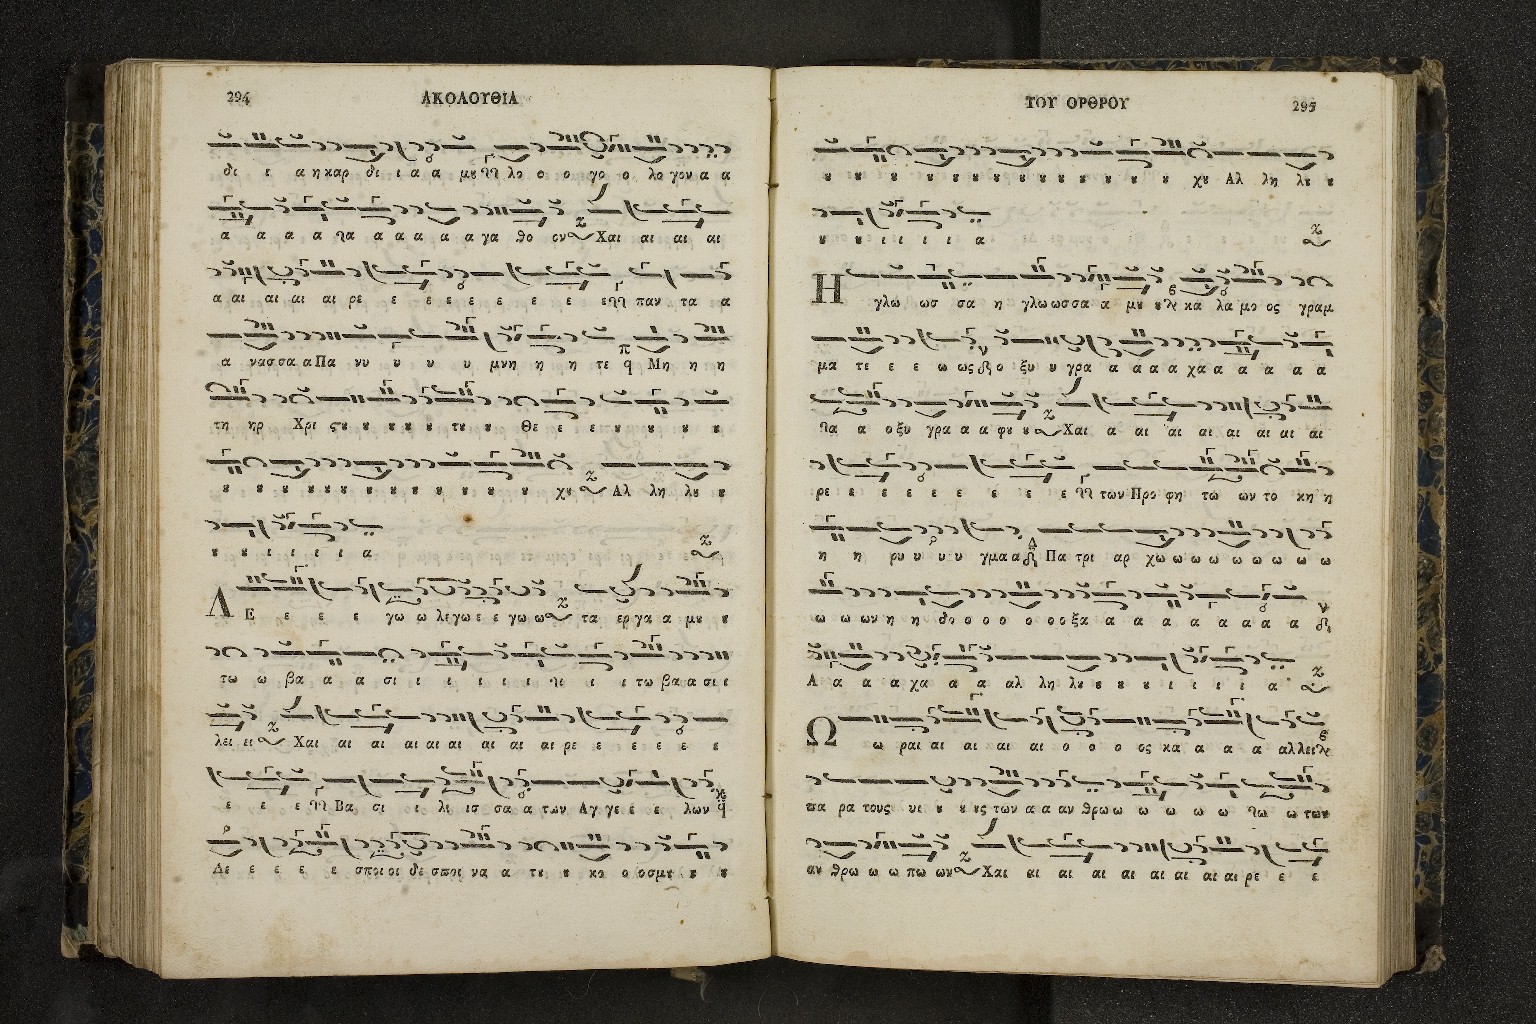 294 ΑΚΟΛΟΥΘΙΑ
δι ι α η καρ δι ι α α μȣ λο ο ο γο ο λο γον α α
α α α α α α α α α α γα θο ον Χαι αι αι αι
α αι αι αι αι ρε ε ε ε ε ε ε ε ε παν τα α
α νασσα α Πα νυ υ υ υ υ μνη η η η τε Μη η η
τη ηρ Χρι ςȣ ȣ ȣ ȣ ȣ τȣ ȣ Θε ε ε ȣ ȣ ȣ ȣ
ȣ ȣ ȣ ȣ ȣ ȣ ȣ ȣ ȣ ȣ ȣ ȣ ȣ ȣ χȣ Αλ λη λȣ ȣ
ȣ ȣ ι ι ι ι α
Λ Ε ε ε ε γω ω λεγω ε ε γω ω τα εργα α μȣ ȣ
τω ω βα α α σι ι ι ι ι ι ι ι τω βα α σι ι
λει ει Χαι αι αι αι αι αι αι αι αι ρε ε ε ε ε ε
ε ε ε Βα σι ι λι ισ σα α των Αγ γε ε ε λων
Δε ε ε ε ε σποι οι δε σποι να α α τȣ ȣ κο ο οσμȣ ȣ ȣ
ΤΟΥ ΟΡΘΡΟΥ 295
ȣ ȣ ȣ ȣ ȣ ȣ ȣ ȣ ȣ ȣ ȣ ȣ ȣ ȣ χȣ Αλ λη λȣ ȣ
ȣ ȣ ι ι ι ι α
Η γλω ωσ σα η γλωωσσα α μȣ ȣ κα λα μο ος γραμ
μα τε ε ε ω ως ο ξυ υ γρα α α α α χα α α α α α
α α οξυ γρα α α φȣ ȣ Χαι α αι αι αι αι αι αι αι
ρε ε ε ε ε ε ε ε ε των Προ φη τω ων το κη η
η η ρυ υ υ υ γμα α Πα τρι αρ χω ω ω ω ω ω ω ω ω
ω ω ων η η δο ο ο ο ο οο ξα α α α α α α α α
Α α α α χα α α αλ λη λȣ ȣ ȣ ȣ ι ι ι ι α
Ω ω ραι αι αι αι αι ο ο ο ος κα α α α αλλει
πα ρα τους υι ȣ ȣ ȣς των α α αν θρω ω ω ω ω ω ω των
αν θρω ω ω πω ων Χαι αι αι αι αι αι αι αι αι ρε ε ε